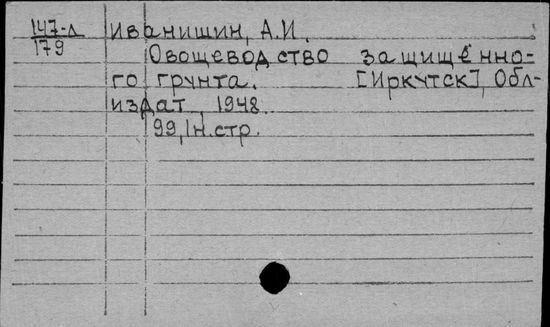 147-л
179
Иванишин, А.И.
Овощеводство защищённо-
го грунта. [Иркутск], Обл-
издат, 1948.
99, 1 н. стр.